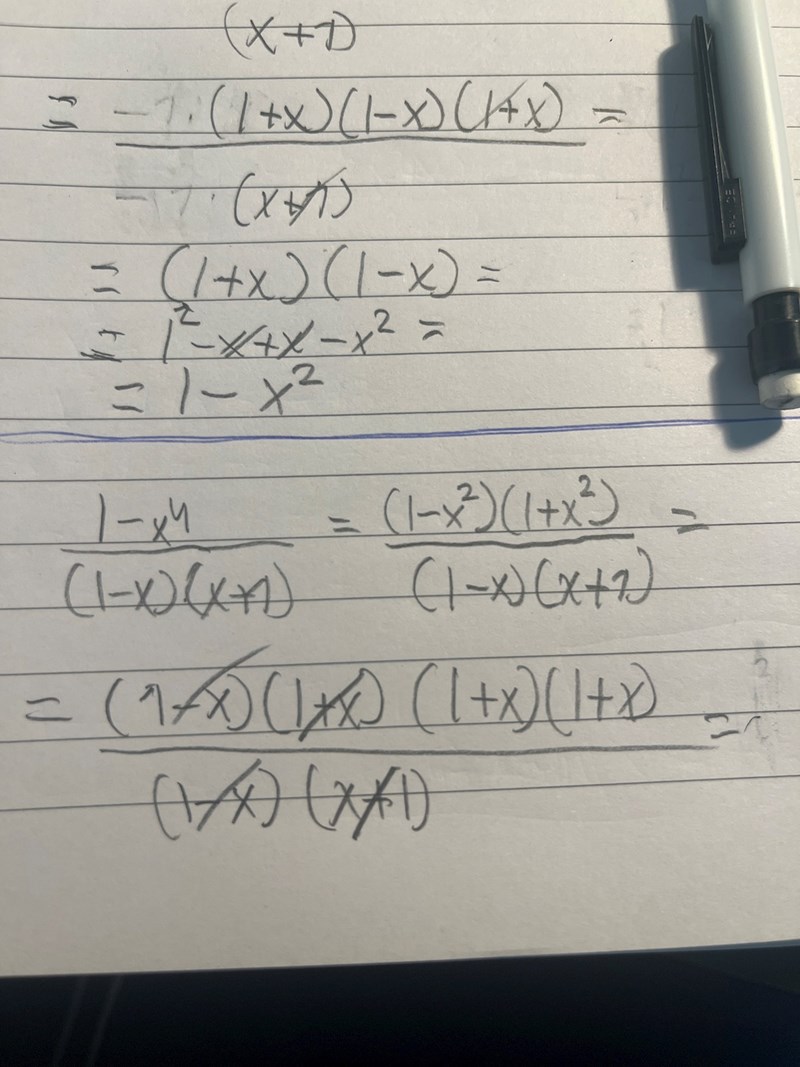 (x+1)
= -1·(1+x)(1-x)(1+x) =
-1·(x+1)
= (1+x)(1-x) =
= 1²-x+x-x² =
= 1-x²
1-x⁴ = (1-x²)(1+x²) =
(1-x)(x+1) (1-x)(x+1)
= (1-x)(1+x)(1+x)(1+x) =
(1-x)(x+1)